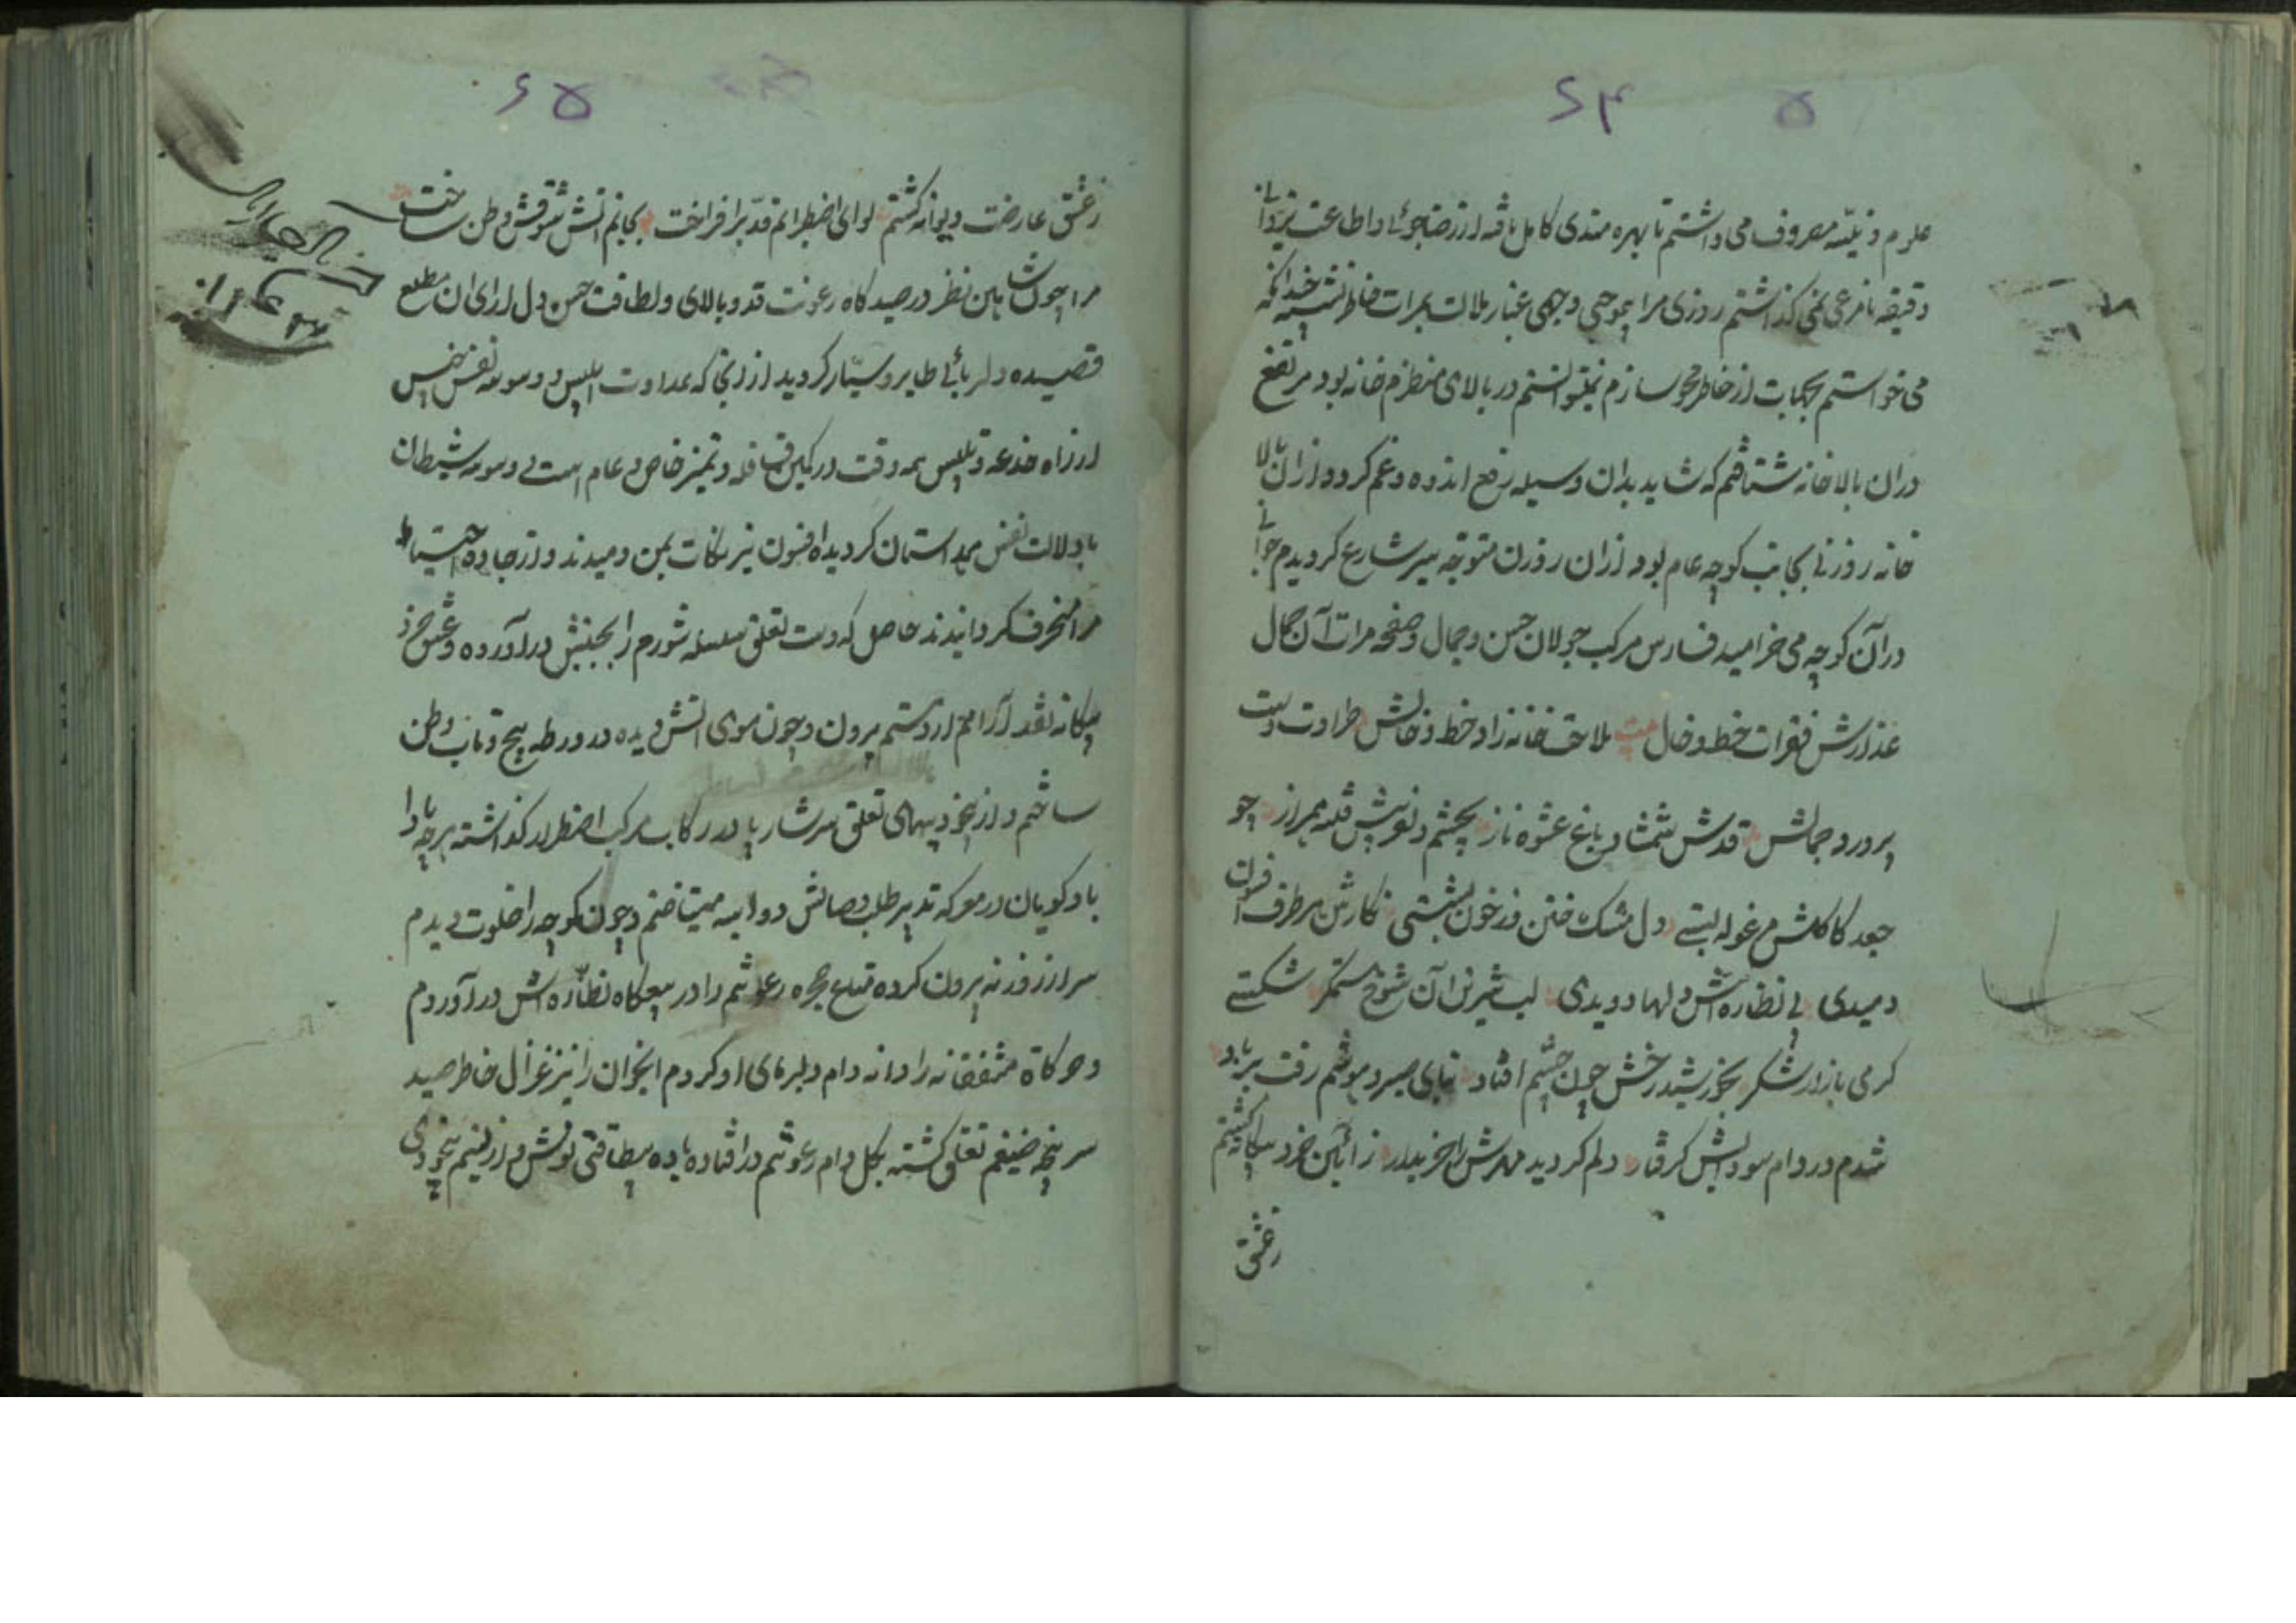 ۶۴
علوم دینیّه مصروف می داشتم تا بهره مندی کامل یافته از رضاجوئی و اطاعت یزدانی
دقیقه نامرعی نمی گذاشتم روزی مرا بموجبی وجهی غبار ملالت بمرات خاطر نشسته چندانکه
می خواستم بحکایت از خاطر محو سازم نمیتوانستم در بالای منظرم خانه بود مرتفع
دران بالا خانه شتافتم که شاید بدان وسیله رفع اندوه و غم کردد از ان بالا
خانه روزنی بجانب کوچه عام بود از ان روزن متوجّه سیر شارع کردیدم جوانی
در آن کوچه می خرامید فارس مرکب جولان حسن و جمال و صفحه مرات آن جمال
عذارش فقرات خط و خال ملاحت خانه زاد خط و خالش طراوت دست
پرورد جمالش قدش شمشاد باغ عشوه ناز بچشم دلنوپیش فتنه همراز چو
جعد کاکلش مرغوله بستی دل مشک ختن در خون نشستی نکارش هر طرف افسون
دمیدی پی نظاره اش دلها دویدی لب شیرین آن شوخ ستمکر شکستی
کرمی بازار شکر بخورشید رخش چون چشم افتاد بنای صبر و هوشم رفت برباد
شدم در دام سودایش کرفتار دلم کردید مهرش را خریدار ز آئین خرد بیکانه کشتم
زعشق
۶۵
زعشق عارضت دیوانه کشتم لوای اضطرابم قد برافراخت بجانم اتش شوقش وطن ساخت
مرا چون شاهین نظر در صیدکاه رعونت قد و بالای و لطافت حسن دل ارای ان مطلع
قصیده دلربائی طایر و سیّار کردید از انجا که عداوت ابلیس و وسوسه نفس خسیس
از راه خدعه و تلبیس همه وقت در کمین قافله و تمیز خاص و عام است بی وسوسه شیطان
با دلالت نفس همداستان کردیده افسون نیرنکات بمن دمیدند و از جاده احتیاط
مرا منحرف کردانیدند حاصل که دست تعلق سلسله شورم را بجنبش در آورده و عشق خرد
بیکانه نقد آرامم از دستم برون و چون موی اتش دیده در ورطه پیچ و تاب وطن
ساختم و از بیخودیهای تعلق سرشار پا در رکاب مرکب اضطرار کذاشته هرچه بادا
باد کویان در معرکه تدبیر طلب وصالش دو اسبه میتاختم و چون کوچه را خلوت دیدم
سر از روزنه بیرون کرده متاع چهره رعنائیم را در بیعکاه نظّاره اش در آوردم
و حرکاة مشفقانه را دانه دام دلبرهای او کردم انجوان را نیز غزال خاطر صید
سر پنجه ضیغم تعلق کشته بکل دام رعونتم در افتاده باده بیطاقتی نوش و از نسیم بیخودی